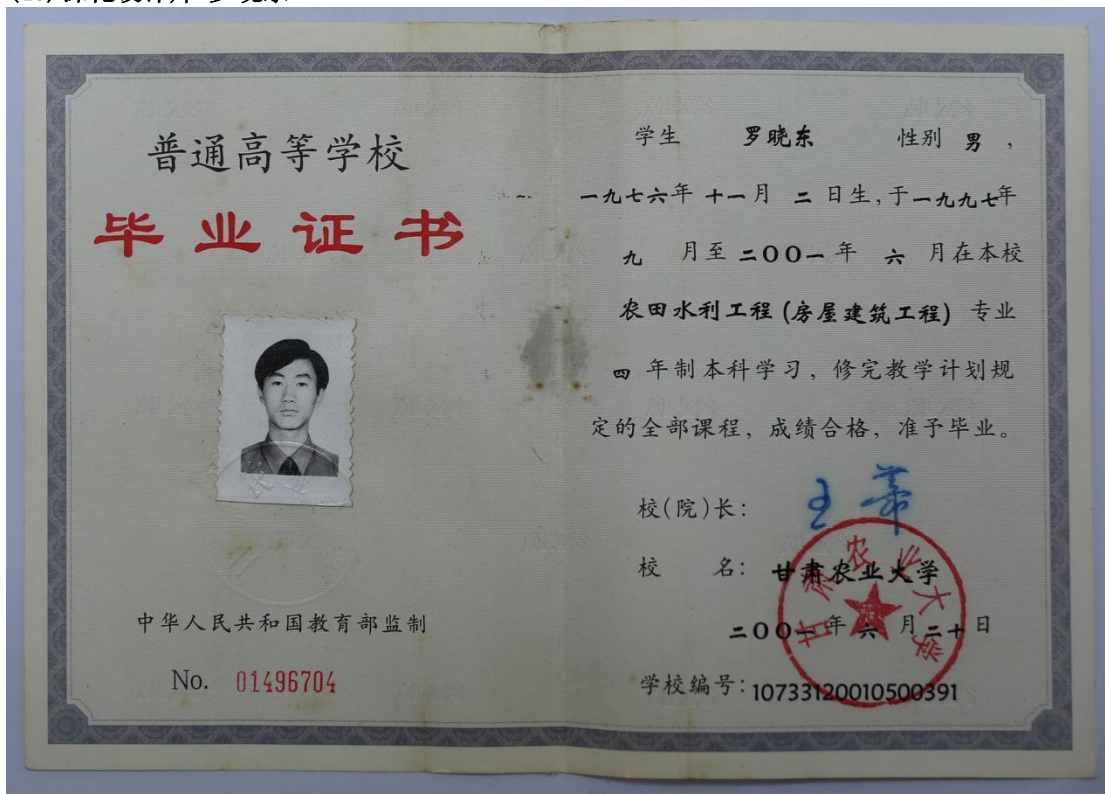 普通高等学校
毕业证书
中华人民共和国教育部监制
No. 01496704
学生 罗晓东 性别 男,
一九七六年 十一月 二 日生,于一九九七年
九 月至 二00一 年 六 月在本校
农田水利工程(房屋建筑工程) 专业
四 年制本科学习, 修完教学计划规
定的全部课程, 成绩合格, 准予毕业。
校(院)长:
校 名: 甘肃农业大学
甘肃农业大学
二00一 年 六 月二十日
学校编号:10733120010500391